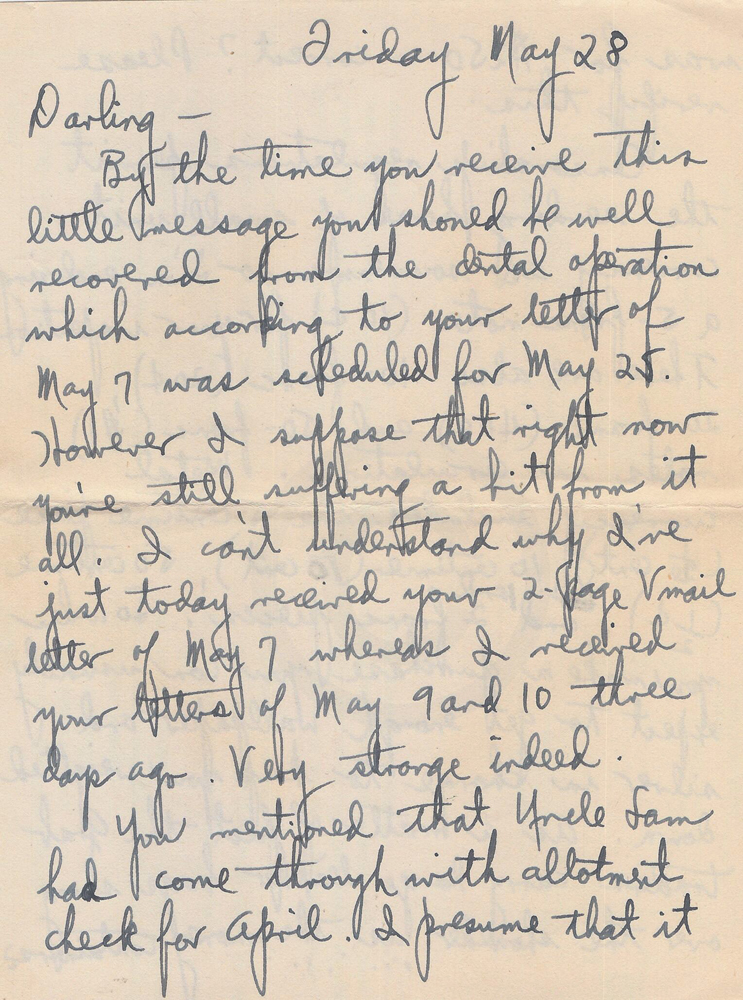 Friday May 28
Darling —
By the time you receive this
little message you should be well
recovered from the dental operation
which according to your letter of
May 7 was scheduled for May 25.
However I suppose that right now
you're still suffering a bit from it
all. I can't understand why I've
just today received your 2-page Vmail
letter of May 7 whereas I received
your letters of May 9 and 10 three
days ago. Very strange indeed.
You mentioned that Uncle Sam
had come through with allotment
check for April. I presume that it